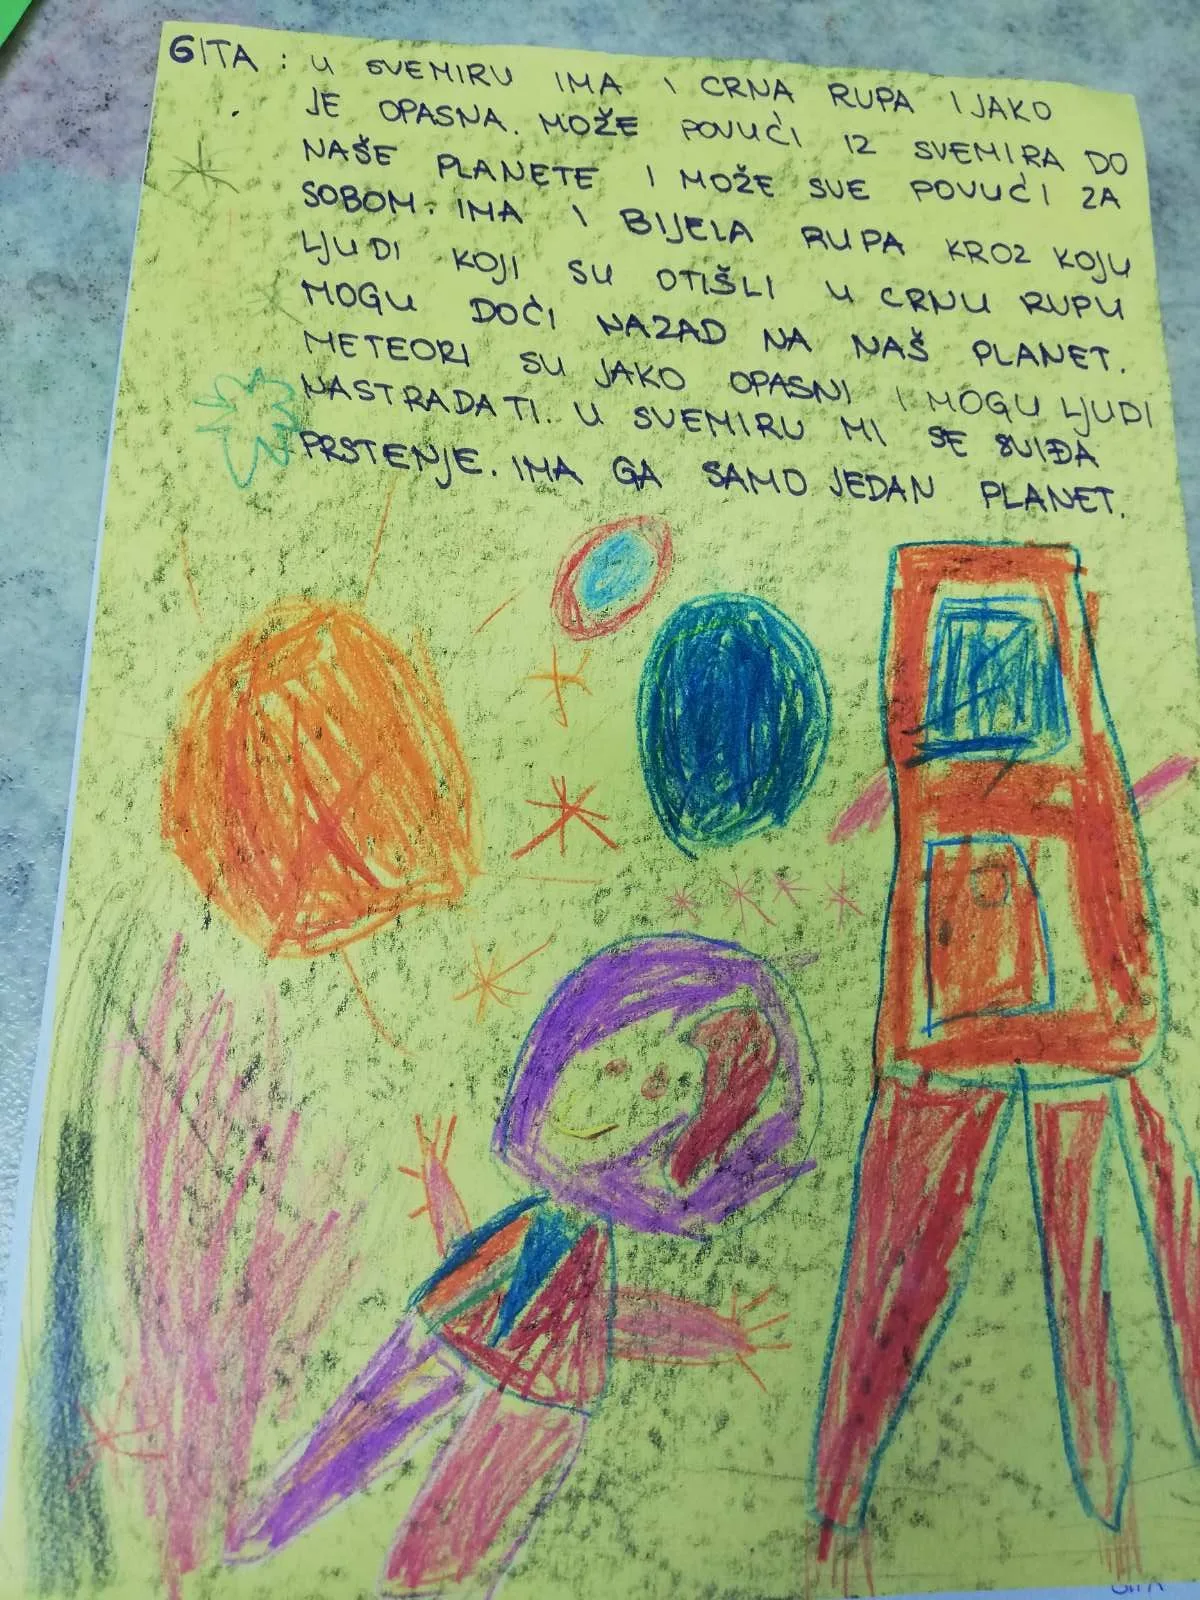 GITA: U SVEMIRU IMA I CRNA RUPA I JAKO
JE OPASNA. MOŽE POVUĆI IZ SVEMIRA DO
NAŠE PLANETE I MOŽE SVE POVUĆI ZA
SOBOM. IMA I BIJELA RUPA KROZ KOJU
LJUDI KOJI SU OTIŠLI U CRNU RUPU
MOGU DOĆI NAZAD NA NAŠ PLANET.
METEORI SU JAKO OPASNI I MOGU LJUDI
NASTRADATI. U SVEMIRU MI SE SVIĐA
PRSTENJE. IMA GA SAMO JEDAN PLANET.